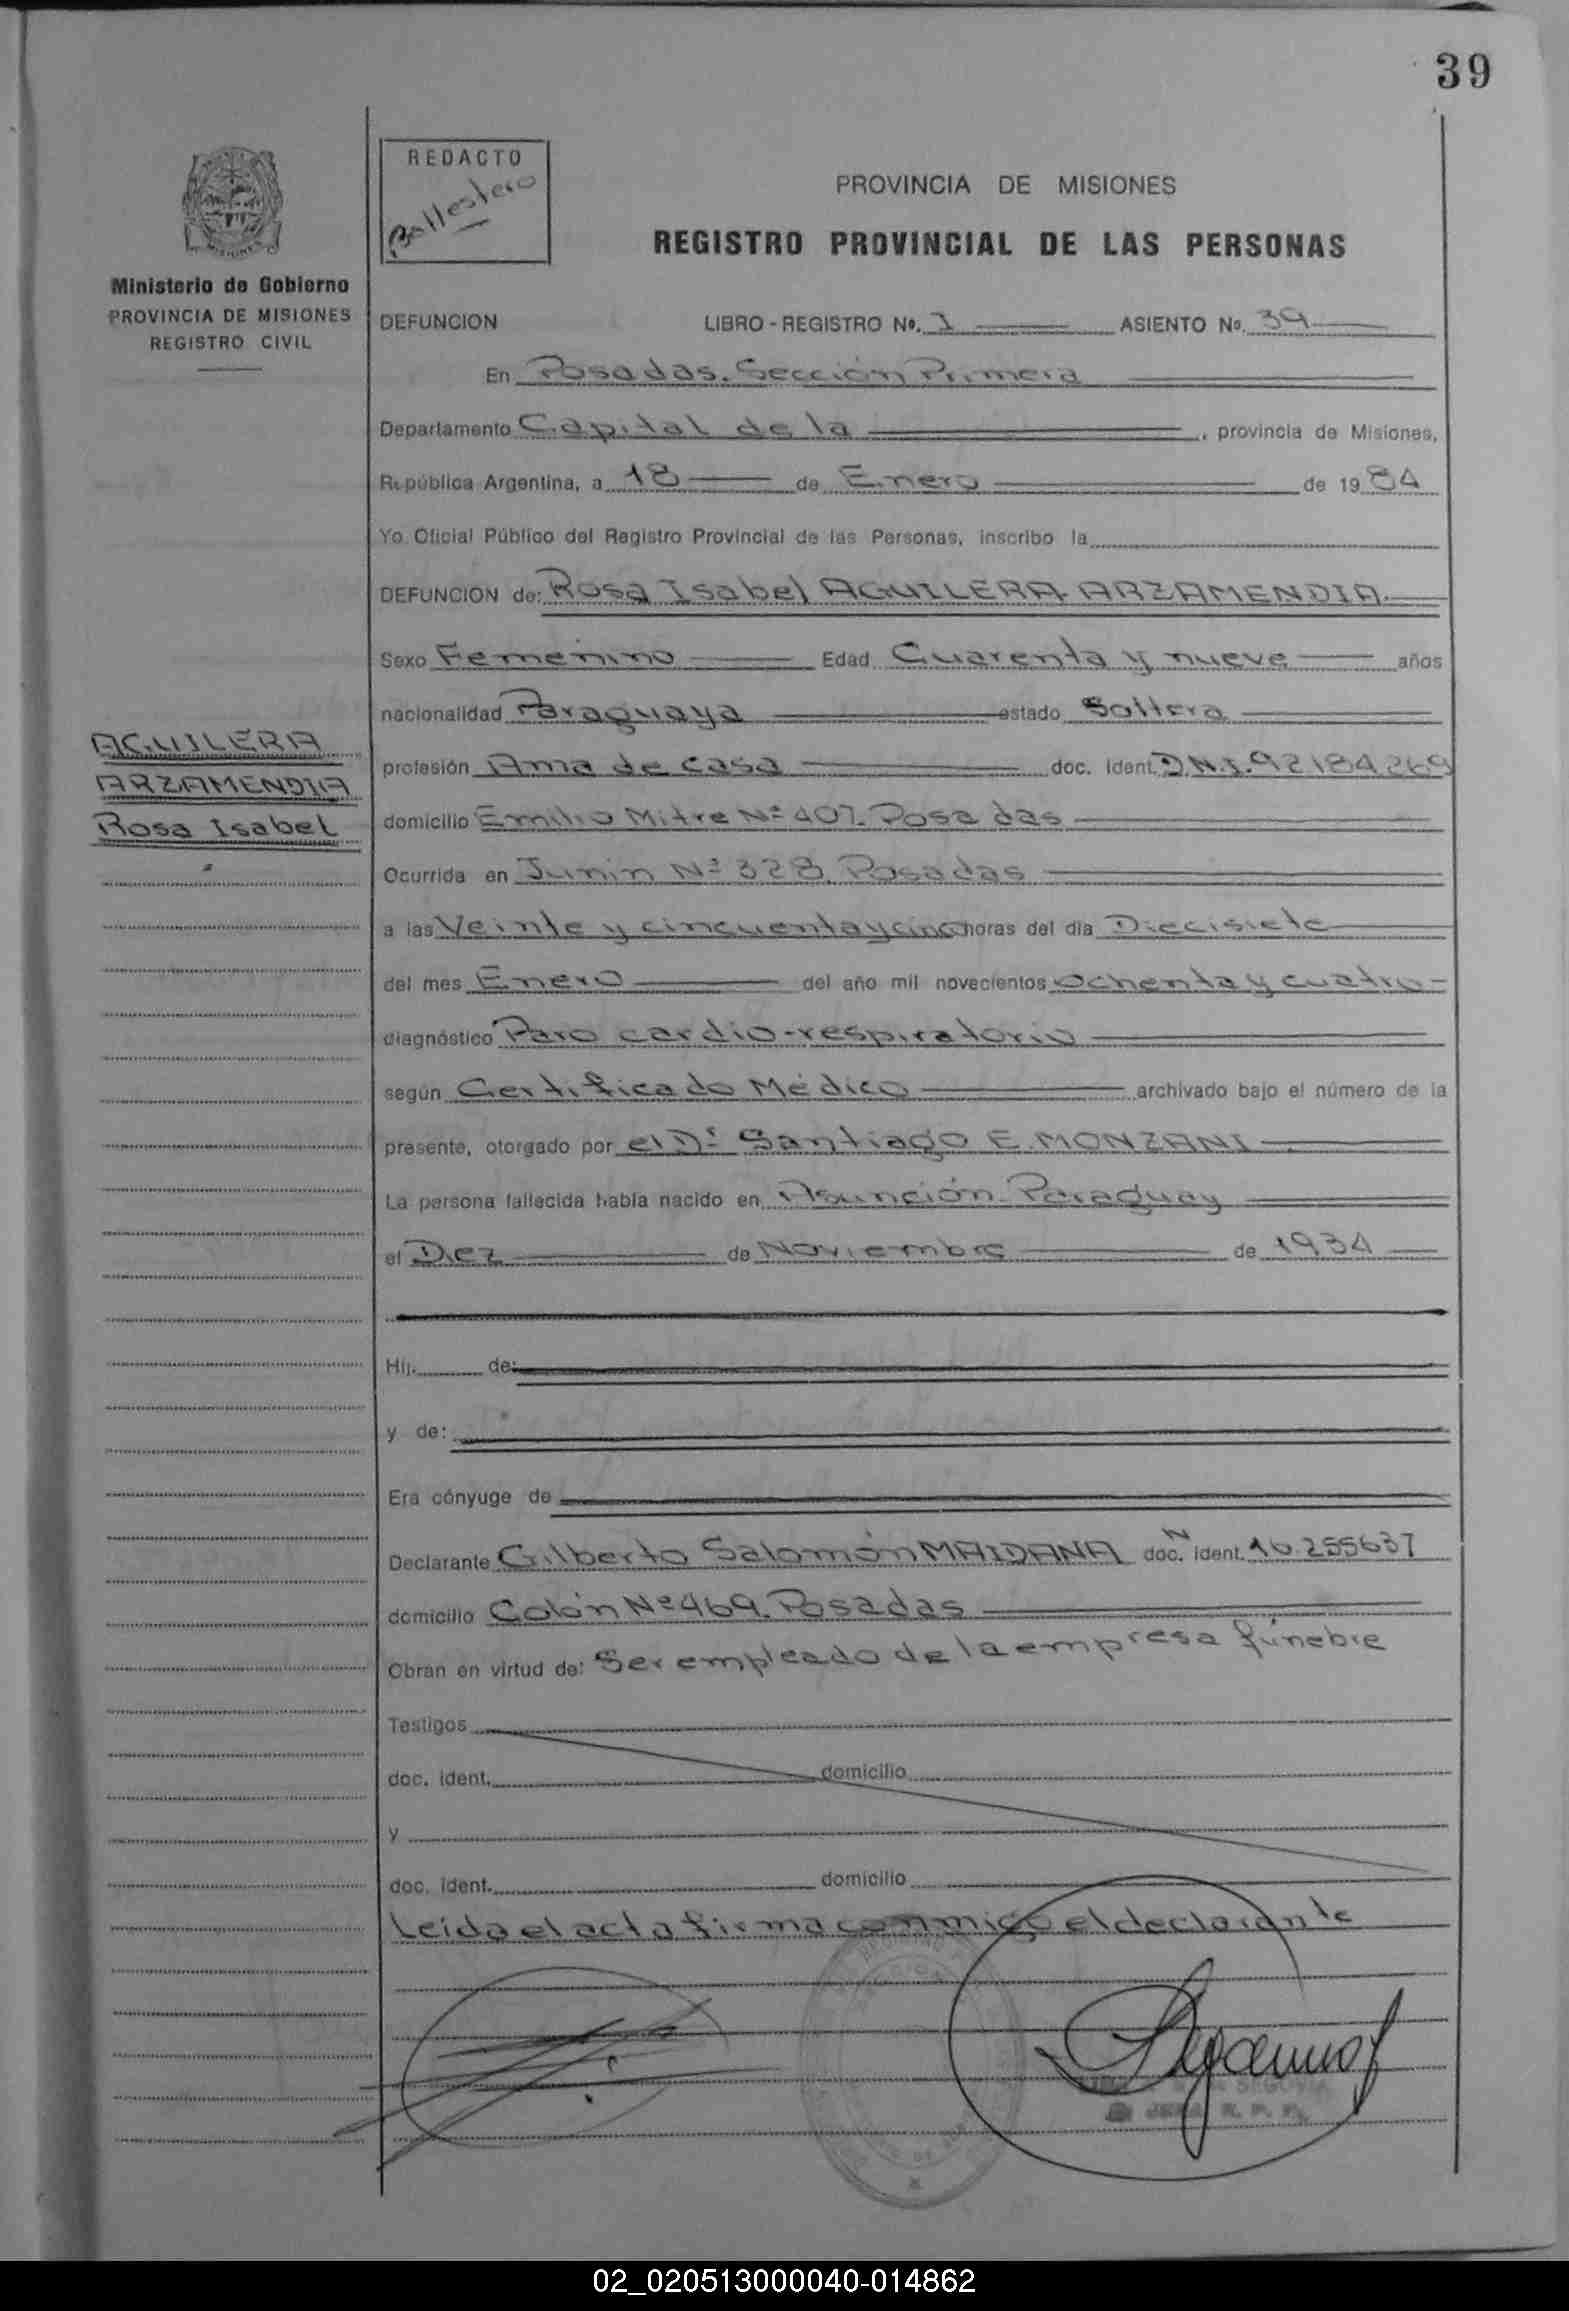 39
REDACTO
Ballestero
PROVINCIA DE MISIONES
REGISTRO PROVINCIAL DE LAS PERSONAS
Ministerio de Gobierno
PROVINCIA DE MISIONES
REGISTRO CIVIL
DEFUNCION LIBRO - REGISTRO Nº. 1 ASIENTO Nº. 39
En Posadas. Sección Primera
Departamento Capital de la , provincia de Misiones,
República Argentina, a 18 de Enero de 1984
Yo Oficial Público del Registro Provincial de las Personas, inscribo la
DEFUNCION de: Rosa Isabel AGUILERA ARZAMENDIA.
Sexo Femenino Edad Cuarenta y nueve años
nacionalidad Paraguaya estado Soltera
AGUILERA
ARZAMENDIA
Rosa Isabel
profesión Ama de casa doc. ident. D.N.I. 92184269
domicilio Emilio Mitre Nº 407. Posadas
Ocurrida en Junin Nº 328. Posadas
a las Veinte y cincuentaycinco horas del día Diecisiete
del mes Enero del año mil novecientos ochenta y cuatro
diagnóstico Paro cardio-respiratorio
según Certificado Médico archivado bajo el número de la
presente, otorgado por el Dr. Santiago E. MONZANI
La persona fallecida había nacido en Asunción Paraguay
el Diez de Noviembre de 1934
Hij. de:
y de:
Era cónyuge de
Declarante Gilberto Salomón MAIDANA doc. N ident. 16.255637
domicilio Colón Nº 469. Posadas
Obran en virtud de: Ser empleado de la empresa fúnebre
Testigos
doc. ident. domicilio
y
doc. ident. domicilio
Leida el acta firma conmigo el declarante
SEGOVIA
JEFA R. P. P.
02_020513000040-014862